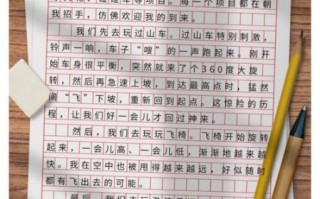 每一个项目都在朝
我招手，仿佛欢迎我的到来。
我们先去玩过山车。过山车特别刺激，
铃声一响，车子“嗖”的一声跑起来。刚开
始车身很平衡，突然就来了个360度大旋
转，然后再急速上坡，到达最高点时，猛然
间“飞”下坡，重新回到起点，这惊险的历
程，让我们好一会儿才回过神来。
然后，我们去玩玩飞椅。飞椅开始旋转
起来，一会儿高、一会儿低，渐渐地越来越
快。我在空中也被甩得越来越远，好似随时
都有飞出去的可能。
最后，我们去